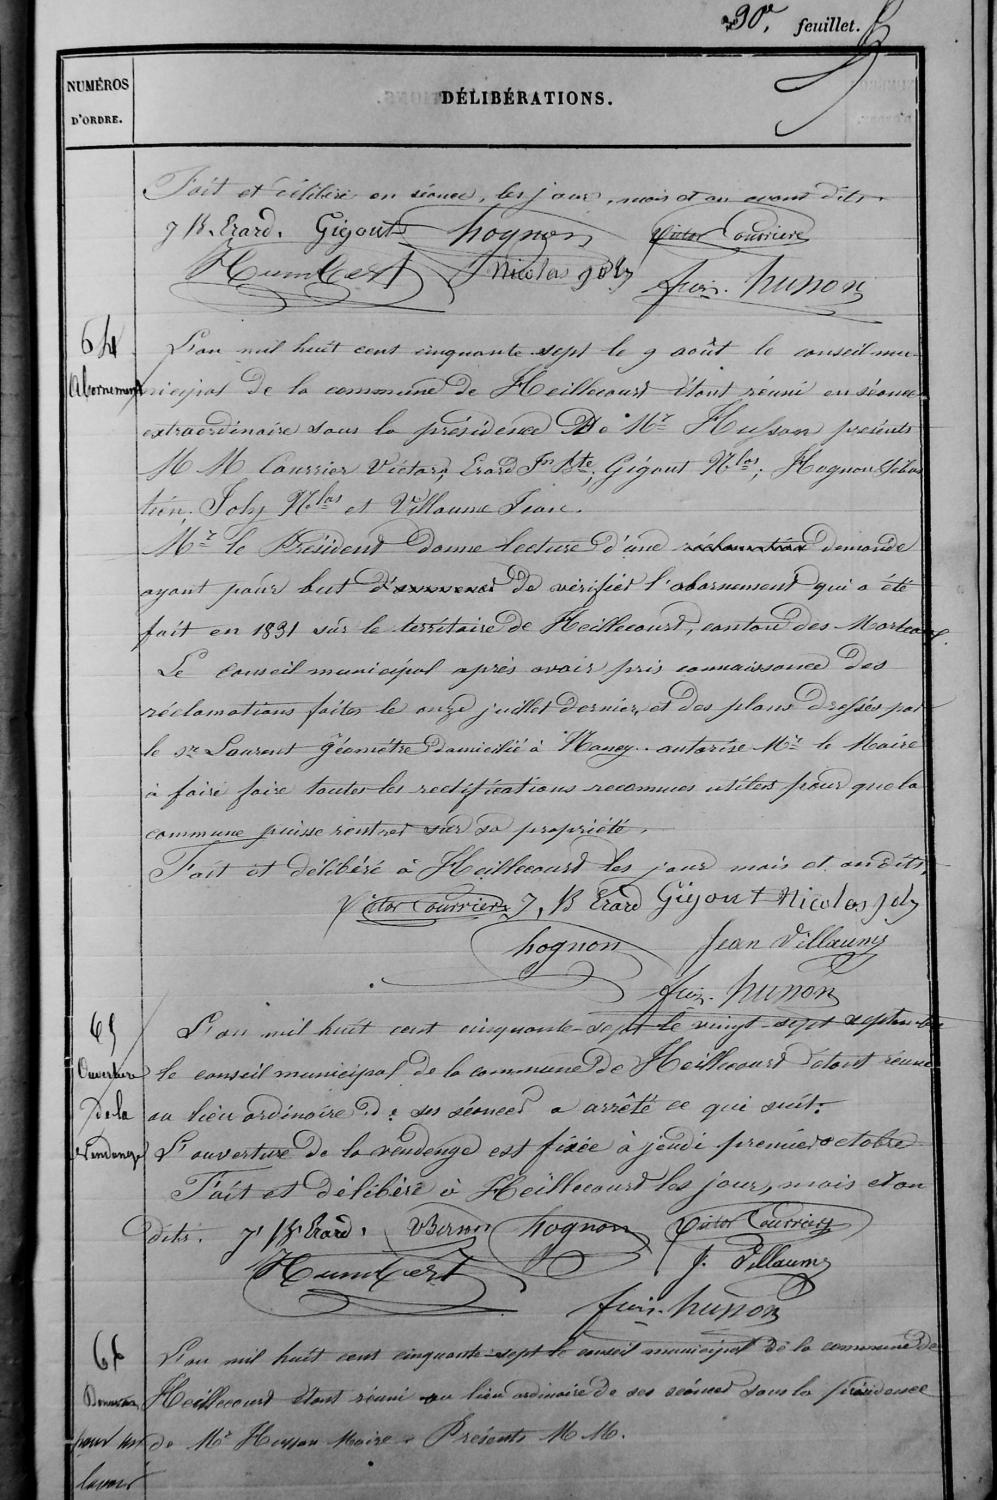 30e. feuillet.
NUMÉROS
D'ORDRE.
DÉLIBÉRATIONS.
Fait et délibéré en séance, les jour, mois et an avant dits.
J B. Erard. Gigout hognon Victor Courrier
Humbert Nicolas joly
husson
64
Abornement
L'an mil huit cent cinquante sept le 9 août le conseil mu-
nicipal de la commune de Heillecourt étant réuni en séance
extraordinaire sous la présidence De Mr Husson présents
M M Courrier Victor, Erard Jn Bte, Gigout Nlas, Hognon Sébas
tien, Joly Nlas et Villaume Jean.
Mr le Président donne lecture d'une réclamation demande
ayant pour but de vérifier l'abornement qui a été
fait en 1831 sur le territoire de Heillecourt, canton des
Le conseil municipal après avoir pris connaissance des
réclamations faites le onze juillet dernier, et des plans dressés par
le Sr Laurent Géomètre Domicilié à Nancy. autorise Mr le Maire
à faire faire toutes les rectifications reconnues utiles pour que la
commune puisse rentrer sur sa propriété.
Fait et délibéré à Heillecourt les jour mois et an dits,
Victor Courrier J. B Erard Gigout Nicolas joly
hognon Jean Villaume
husson
65
Ouverture
de la
Vendange
L'an mil huit cent cinquante-sept le vingt-sept septembre
le conseil municipal de la commune de Heillecourt étant réuni
au lieu ordinaire de ses séances a arrêté ce qui suit:
L'ouverture de la vendenge est fixée à jeudi premier octobre
Fait et délibéré à Heillecourt les jour, mois et an
dits. J. B. Erard. hognon Victor Courrier
Humbert J. Villaume
husson
66
pour un
lavoir
L'an mil huit cent cinquante-sept le conseil municipal de la commune de
Heillecourt étant réuni au lieu ordinaire de ses séances sous la présidence
de Mr Husson Maire. Présents M M.